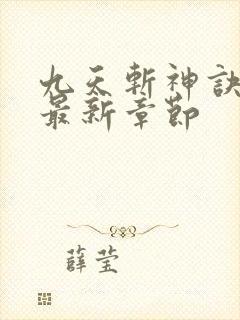 九天斬神訣
最新章節
薛莹